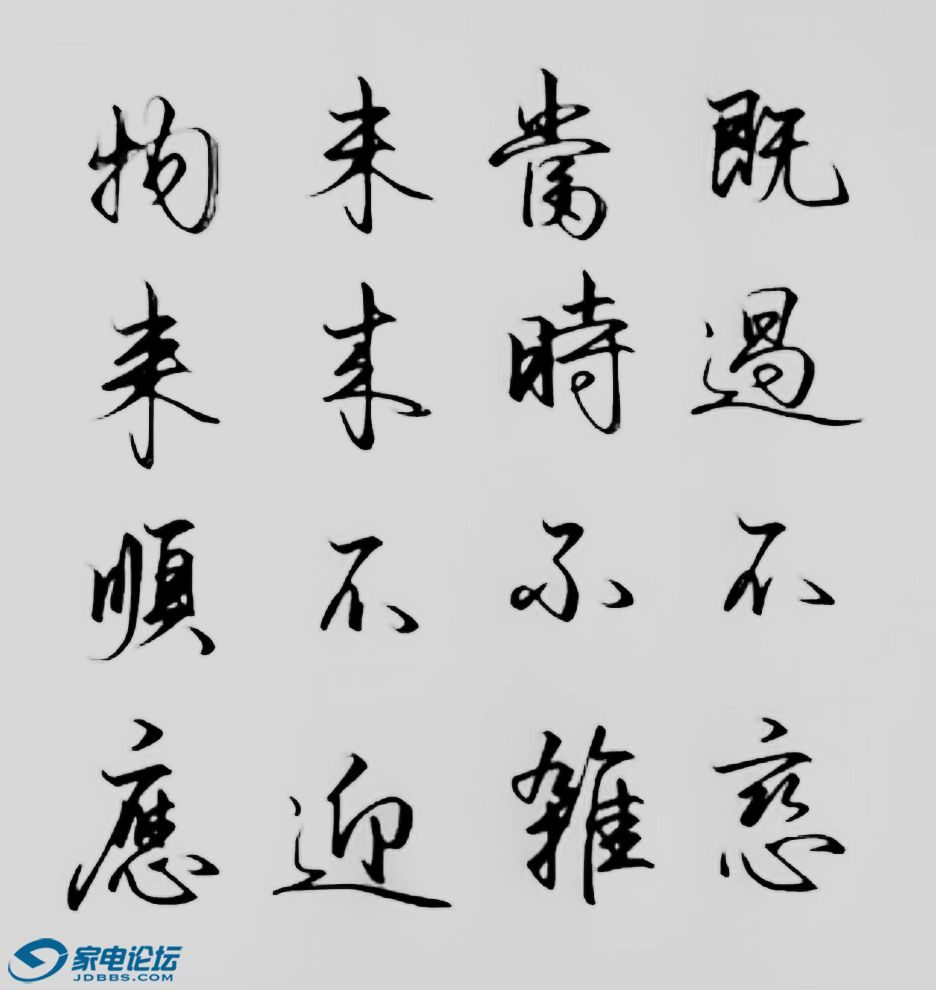 物来順應
未来不迎
當時不雜
既過不恋
家电论坛
JDBBS.COM